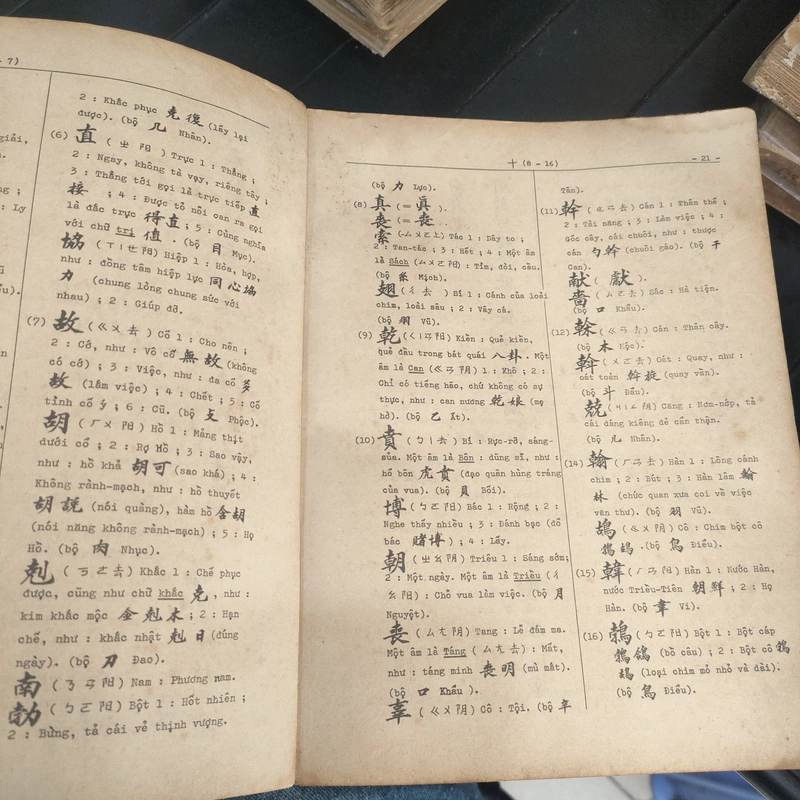 . 7)
giải,
; Ly
2 : Khắc phục 克復 (lấy lại
được). (bộ 几 Nhân).
(6) 直 (ㄓ 阳) Trực 1 : Thẳng ;
2 : Ngay, không tà vạy, riêng tây ;
3 : Thẳng tới gọi là trực tiếp 直
接 ; 4 : Được tỏ nỗi oan ra gọi
là đắc trực 得直 ; 5 : Cùng nghĩa
với chữ trị 值 . (bộ 目 Mục).
協 (ㄒㄧㄝ阳) Hiệp 1 : Hòa, hợp,
như : đồng tâm hiệp lực 同心協
力 (chung lòng chung sức với
nhau) ; 2 : Giúp đỡ.
(7) 故 (ㄍㄨ去) Cố 1 : Cho nên ;
2 : Cớ, như : Vô cố 無故 (không
có cớ) ; 3 : Việc, như : đa cố 多
故 (lắm việc) ; 4 : Chết ; 5 : Cố
tỉnh cố ý ; 6 : Cũ. (bộ 攴 Phộc).
胡 (ㄏㄨ阳) Hồ 1 : Mảng thịt
dưới cổ ; 2 : Rợ Hồ ; 3 : Sao vậy,
như : hồ khả 胡可 (sao khá) ; 4 :
Không rành-mạch, như : hồ thuyết
胡説 (nói quàng), hàm hồ 含胡
(nói năng không rành-mạch) ; 5 : Họ
Hồ. (bộ 肉 Nhục).
剋 (ㄎㄜ去) Khắc 1 : Chế phục
được, cũng như chữ khắc 克, như :
kim khắc mộc 金剋木 ; 2 : Hạn
chế, như : khắc nhật 剋日 (đúng
ngày). (bộ 刀 Đao).
南 (ㄋㄢ阳) Nam : Phương nam.
勃 (ㄅㄛ阳) Bột 1 : Hốt nhiên ;
2 : Bừng, tả cái vẻ thịnh vượng.
十 (8 - 16)
- 21 -
(bộ 力 Lực).
(8) 真 (= 眞 ).
丧 (= 喪 ).
索 (ㄙㄨㄛ上) Tác 1 : Dây to ;
2 : Tan-tác ; 3 : Hết ; 4 : Một âm
là Sách (ㄙㄨㄛ阳) : Tìm, đòi, cầu.
(bộ 糸 Mịch).
翅 (ㄔ去) Sí 1 : Cánh của loài
chim, loài sâu ; 2 : Vây cá.
(bộ 羽 Vũ).
(9) 乾 (ㄑㄧㄢ阳) Kiền : Quẻ kiền,
quẻ đầu trong bát quái 八卦 . Một
âm là Can (ㄍㄢ阴) 1 : Khô ; 2 :
Chỉ có tiếng hão, chứ không có sự
thực, như : can nương 乾娘 (mẹ
hờ). (bộ 乙 Ất).
(10) 賁 (ㄅㄧ去) Bí : Rực-rỡ, sáng-
sủa. Một âm là Bôn : dũng sĩ, như :
hổ bôn 虎賁 (đạo quân hùng tráng
của vua). (bộ 貝 Bối).
博 (ㄅㄛ阳) Bác 1 : Rộng ; 2 :
Nghe thấy nhiều ; 3 : Đánh bạc (đổ
bác 賭博) ; 4 : Lấy.
朝 (ㄓㄠ阴) Triêu 1 : Sáng sớm;
2 : Một ngày. Một âm là Triều (ㄔ
ㄠ阳) : Chỗ vua làm việc. (bộ 月
Nguyệt).
喪 (ㄙㄤ阴) Tang : Lễ đám ma.
Một âm là Táng (ㄙㄤ去) : Mất,
như : táng minh 喪明 (mù mắt).
(bộ 口 Khẩu ).
辜 (ㄍㄨ阴) Cô : Tội. (bộ 辛
Tân).
(11) 幹 (ㄍㄢ去) Cán 1 : Thân thể ;
2 : Tài năng ; 3 : Làm việc ; 4 :
Gốc cây, cái chuôi, như : thược
cán 勺幹 (chuôi gáo). (bộ 干
Can).
献 ( 獻 ).
嗇 (ㄙㄜ去) Sắc : Hà tiện.
(bộ 口 Khẩu).
(12) 榦 (ㄍㄢ去) Cán : Thân cây.
(bộ 木 Mộc).
斡 (ㄨㄛ去) Oát : Quay, như :
oát toàn 斡旋 (quay vần).
(bộ 斗 Đẩu).
兢 (ㄐㄧㄥ阴) Căng : Nơm-nớp, tả
cái dáng kiêng dè cẩn thận.
(bộ 儿 Nhân).
(14) 翰 (ㄏㄢ去) Hàn 1 : Lông cánh
chim ; 2 : Bút ; 3 : Hàn lâm 翰
林 (chức quan xưa coi về việc
văn thư). (bộ 羽 Vũ).
鴣 (ㄍㄨ阴) Cô : Chim bột cô
鵓鴣 . (bộ 鳥 Điểu).
(15) 韓 (ㄏㄢ阳) Hàn 1 : Nước Hàn,
nước Triều-Tiên 朝鮮 ; 2 : Họ
Hàn. (bộ 韋 Vi).
(16) 鵓 (ㄅㄛ阳) Bột 1 : Bột cáp
鵓鴿 (bồ câu) ; 2 : Bột cô 鵓
鴣 (loại chim mỏ nhỏ và dài).
(bộ 鳥 Điểu).